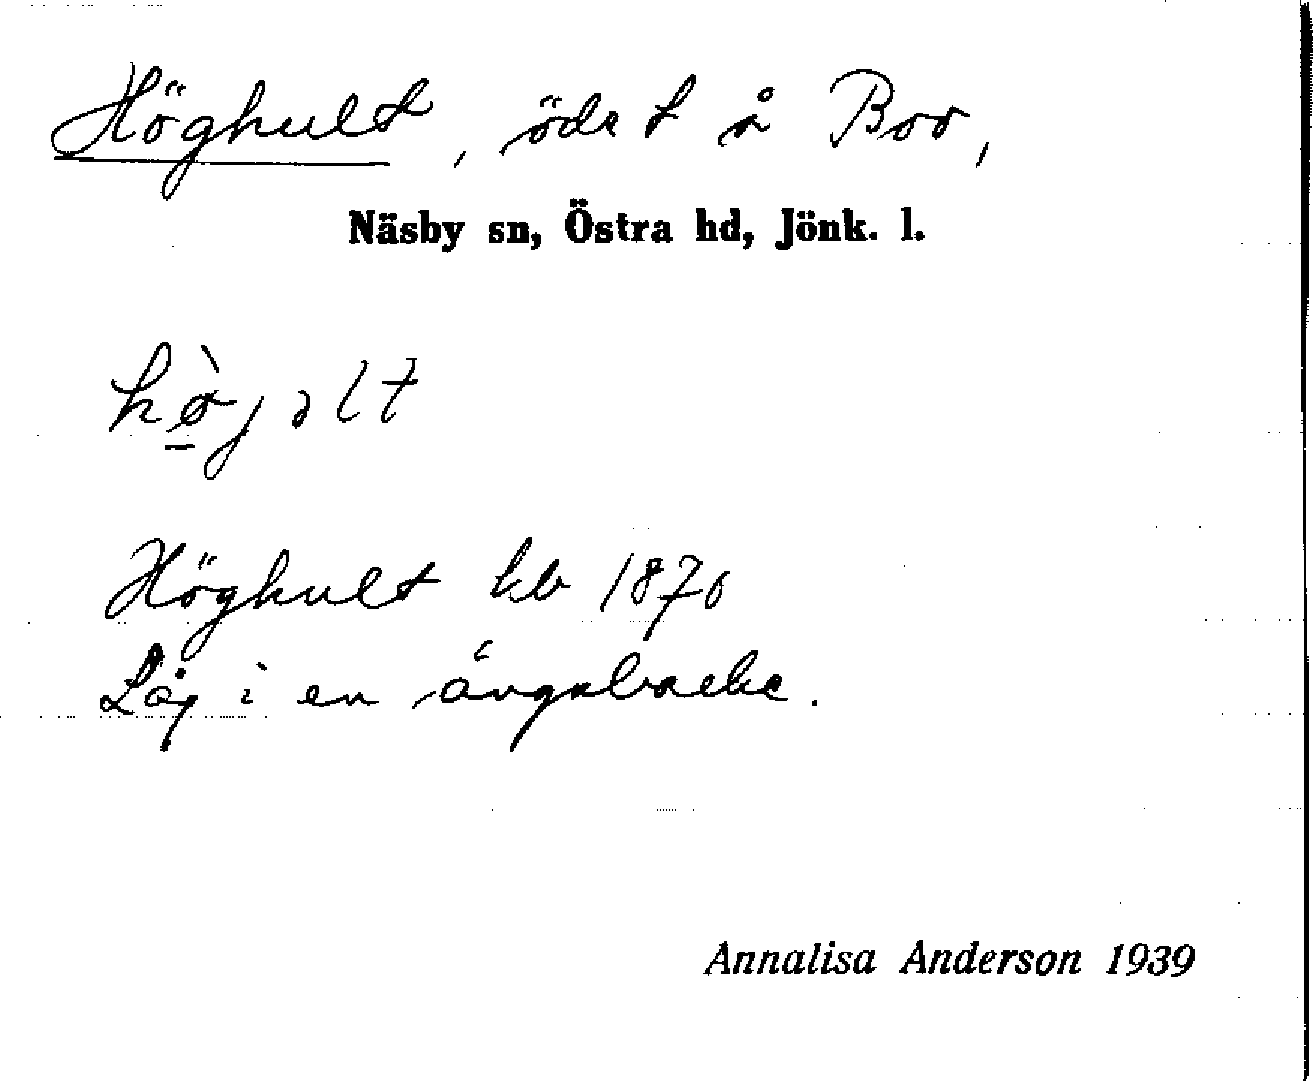 Höghult, öde t å Boo,
Näsby sn, Östra hd, Jönk. l.
hø̠̀jəlt
Höghult kb 1870
Låg i en ängsbacke.
Annalisa Anderson 1939